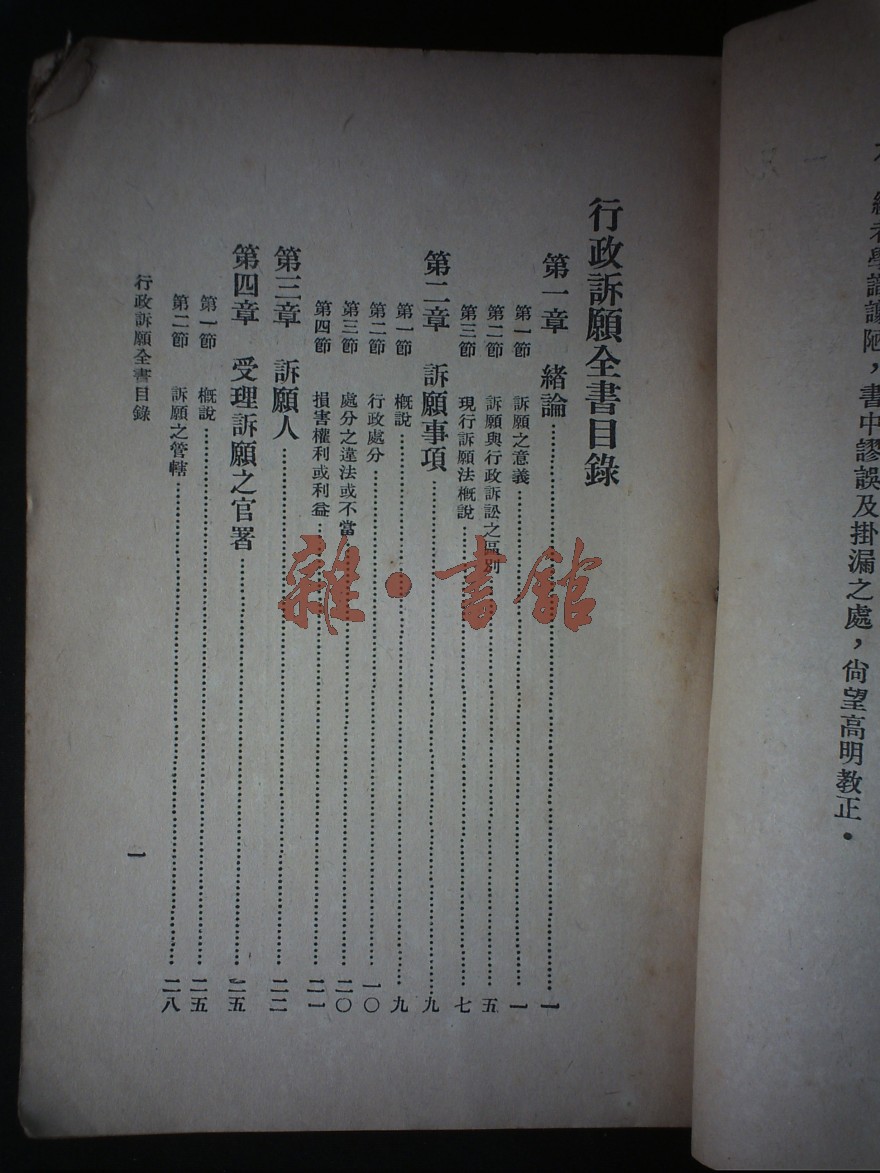 編者學識譾陋，書中謬誤及掛漏之處，尙望高明教正．
行政訴願全書目錄
第一章　緒論……一
第一節　訴願之意義……一
第二節　訴願與行政訴訟之區別……五
第三節　現行訴願法槪說……七
第二章　訴願事項……九
第一節　槪說……九
第二節　行政處分……一〇
第三節　處分之違法或不當……二〇
第四節　損害權利或利益……二一
第三章　訴願人……二二
第四章　受理訴願之官署……二五
第一節　槪說……二五
第二節　訴願之管轄……二八
行政訴願全書目錄
一
雜·書館